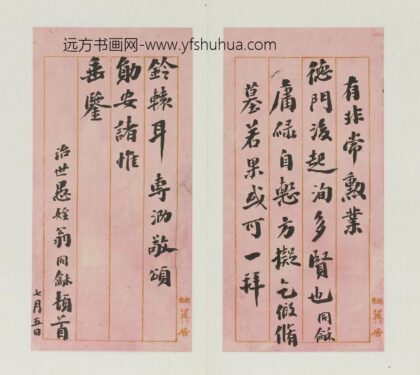 远方书画网-www.yfshuhua.com
有非常勲業
德门後起洵多賢也同龢
庸碌自慙方擬乞假脩
墓若果或可一拜
鈴轅耳専泐敬頌
勛安諸惟
垂鑒
治世愚姪翁同龢頓首
七月五日